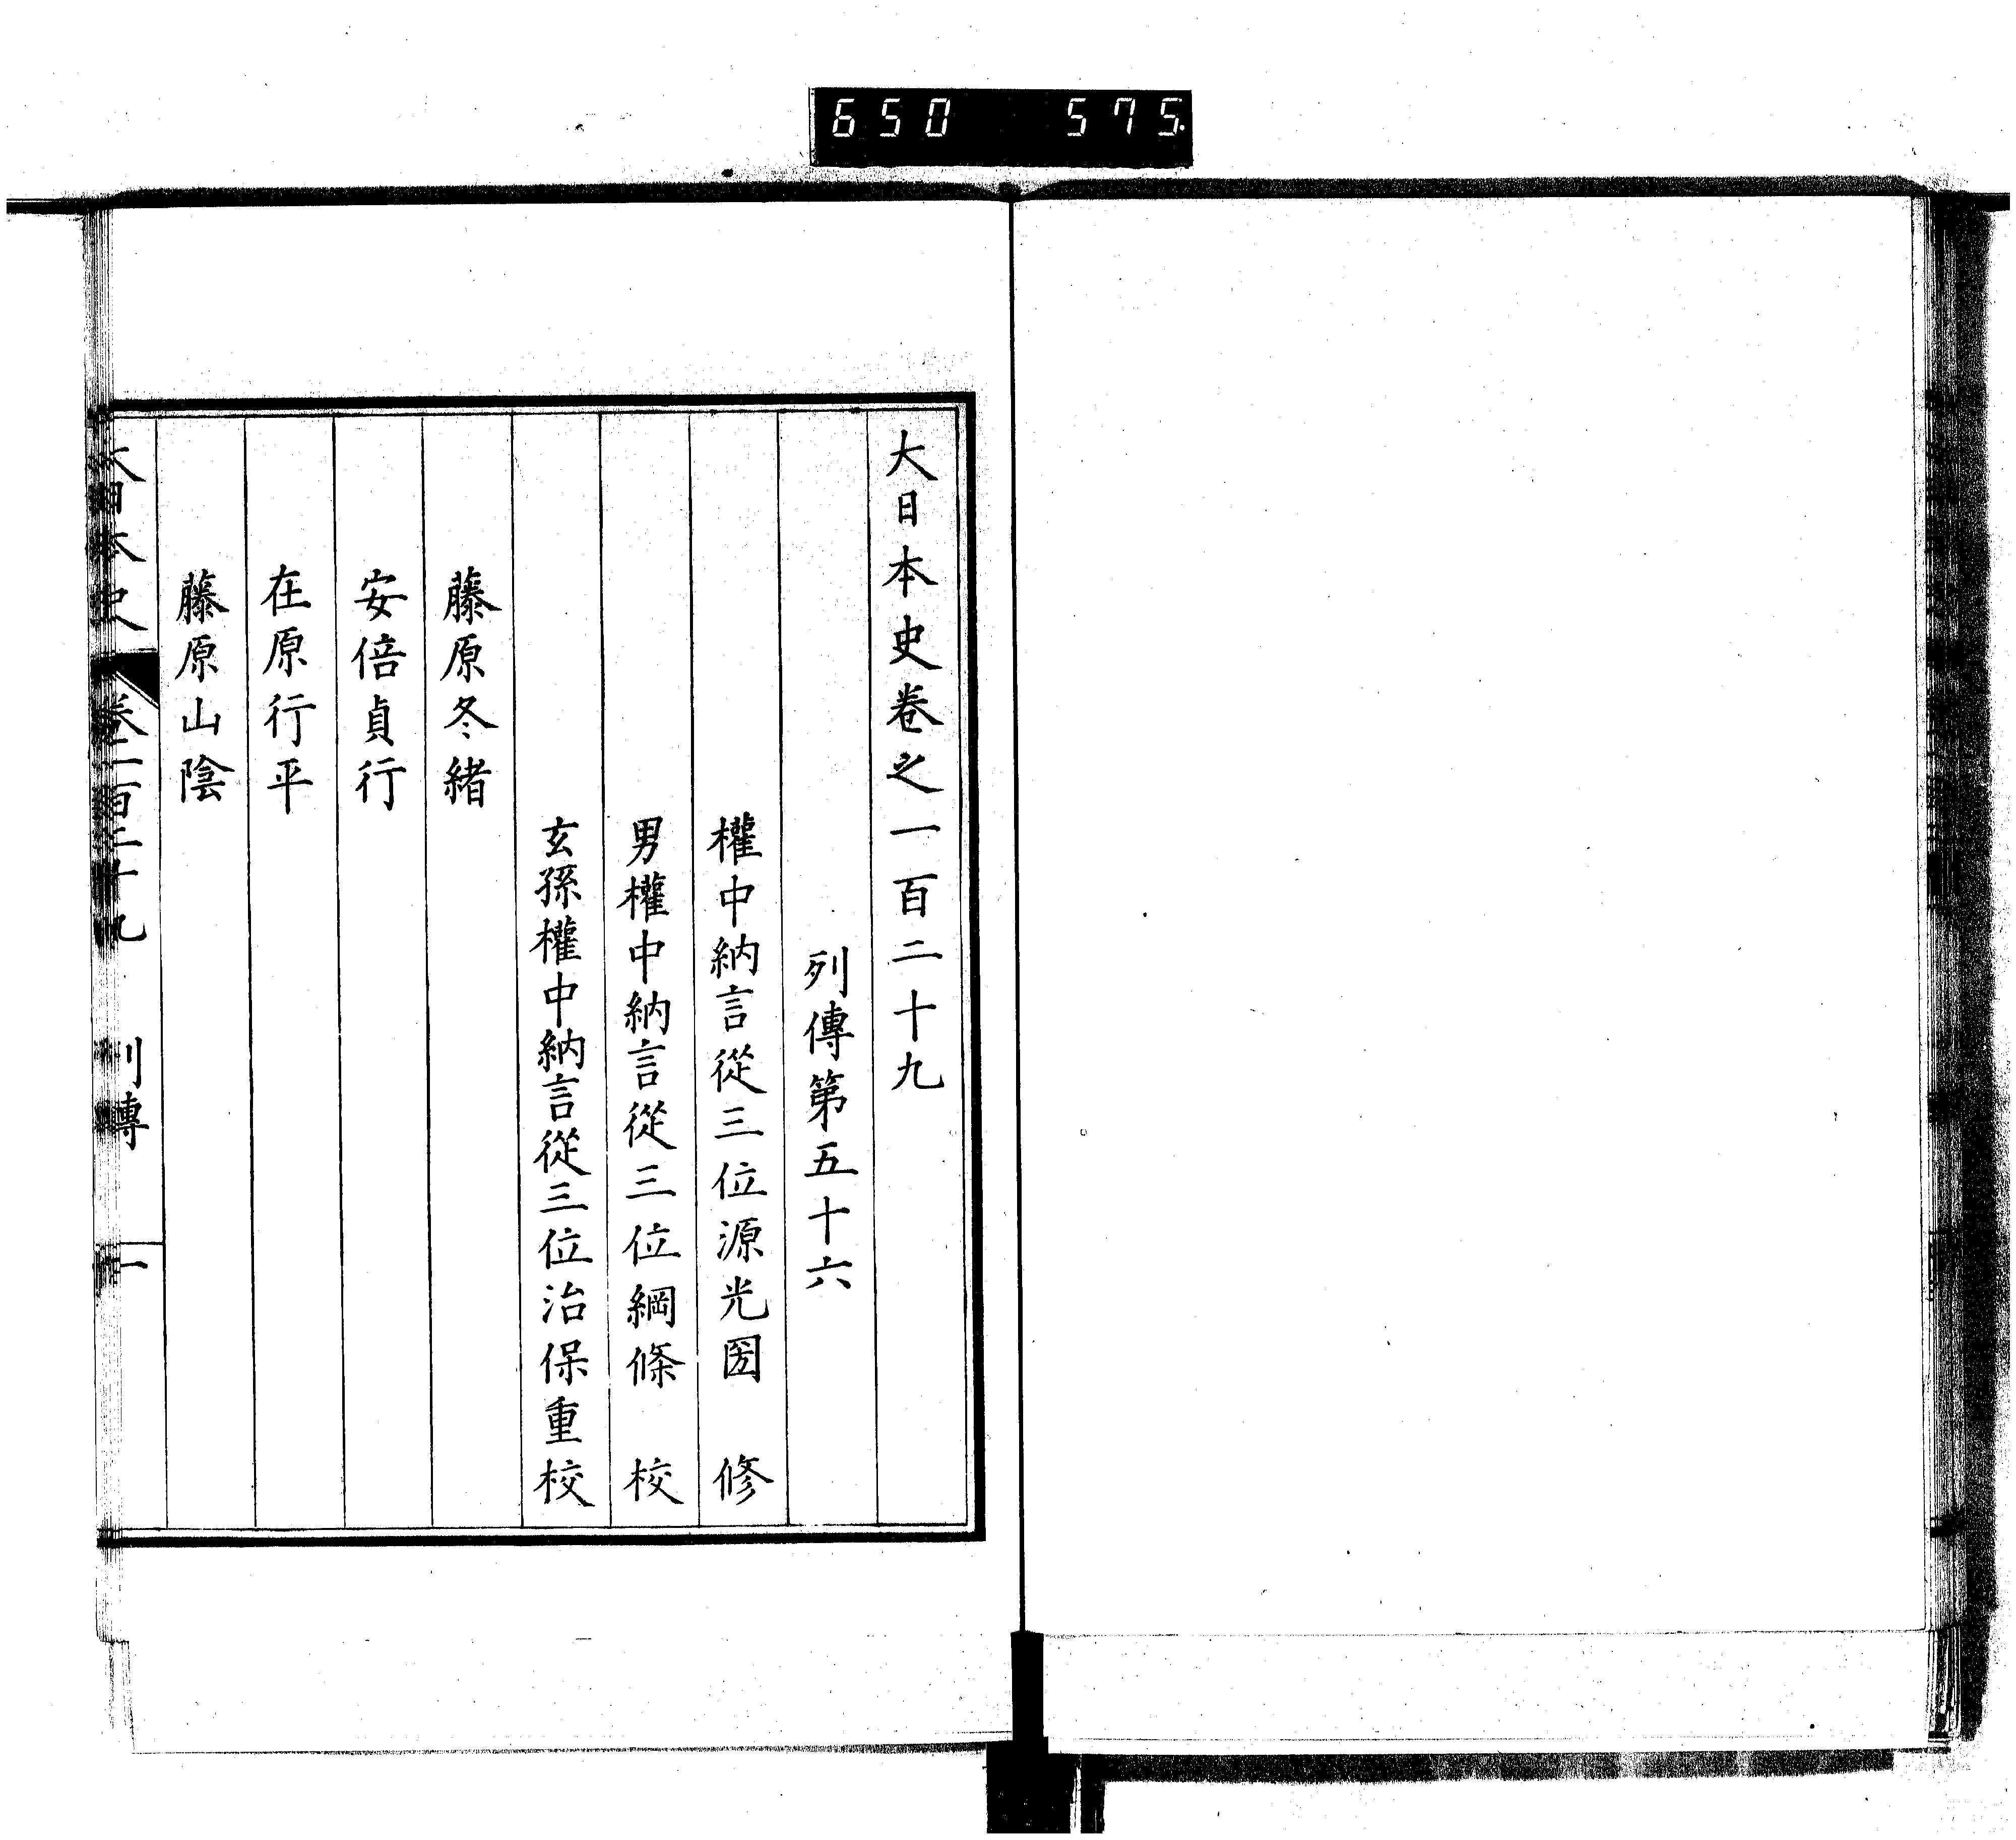 650 575.
大日本史卷之一百二十九
列傳第五十六
權中納言從三位源光圀 修
男權中納言從三位綱條 校
玄孫權中納言從三位治保重校
藤原冬緒
安倍貞行
在原行平
藤原山陰
大日本史 卷一百二十九 列傳 一